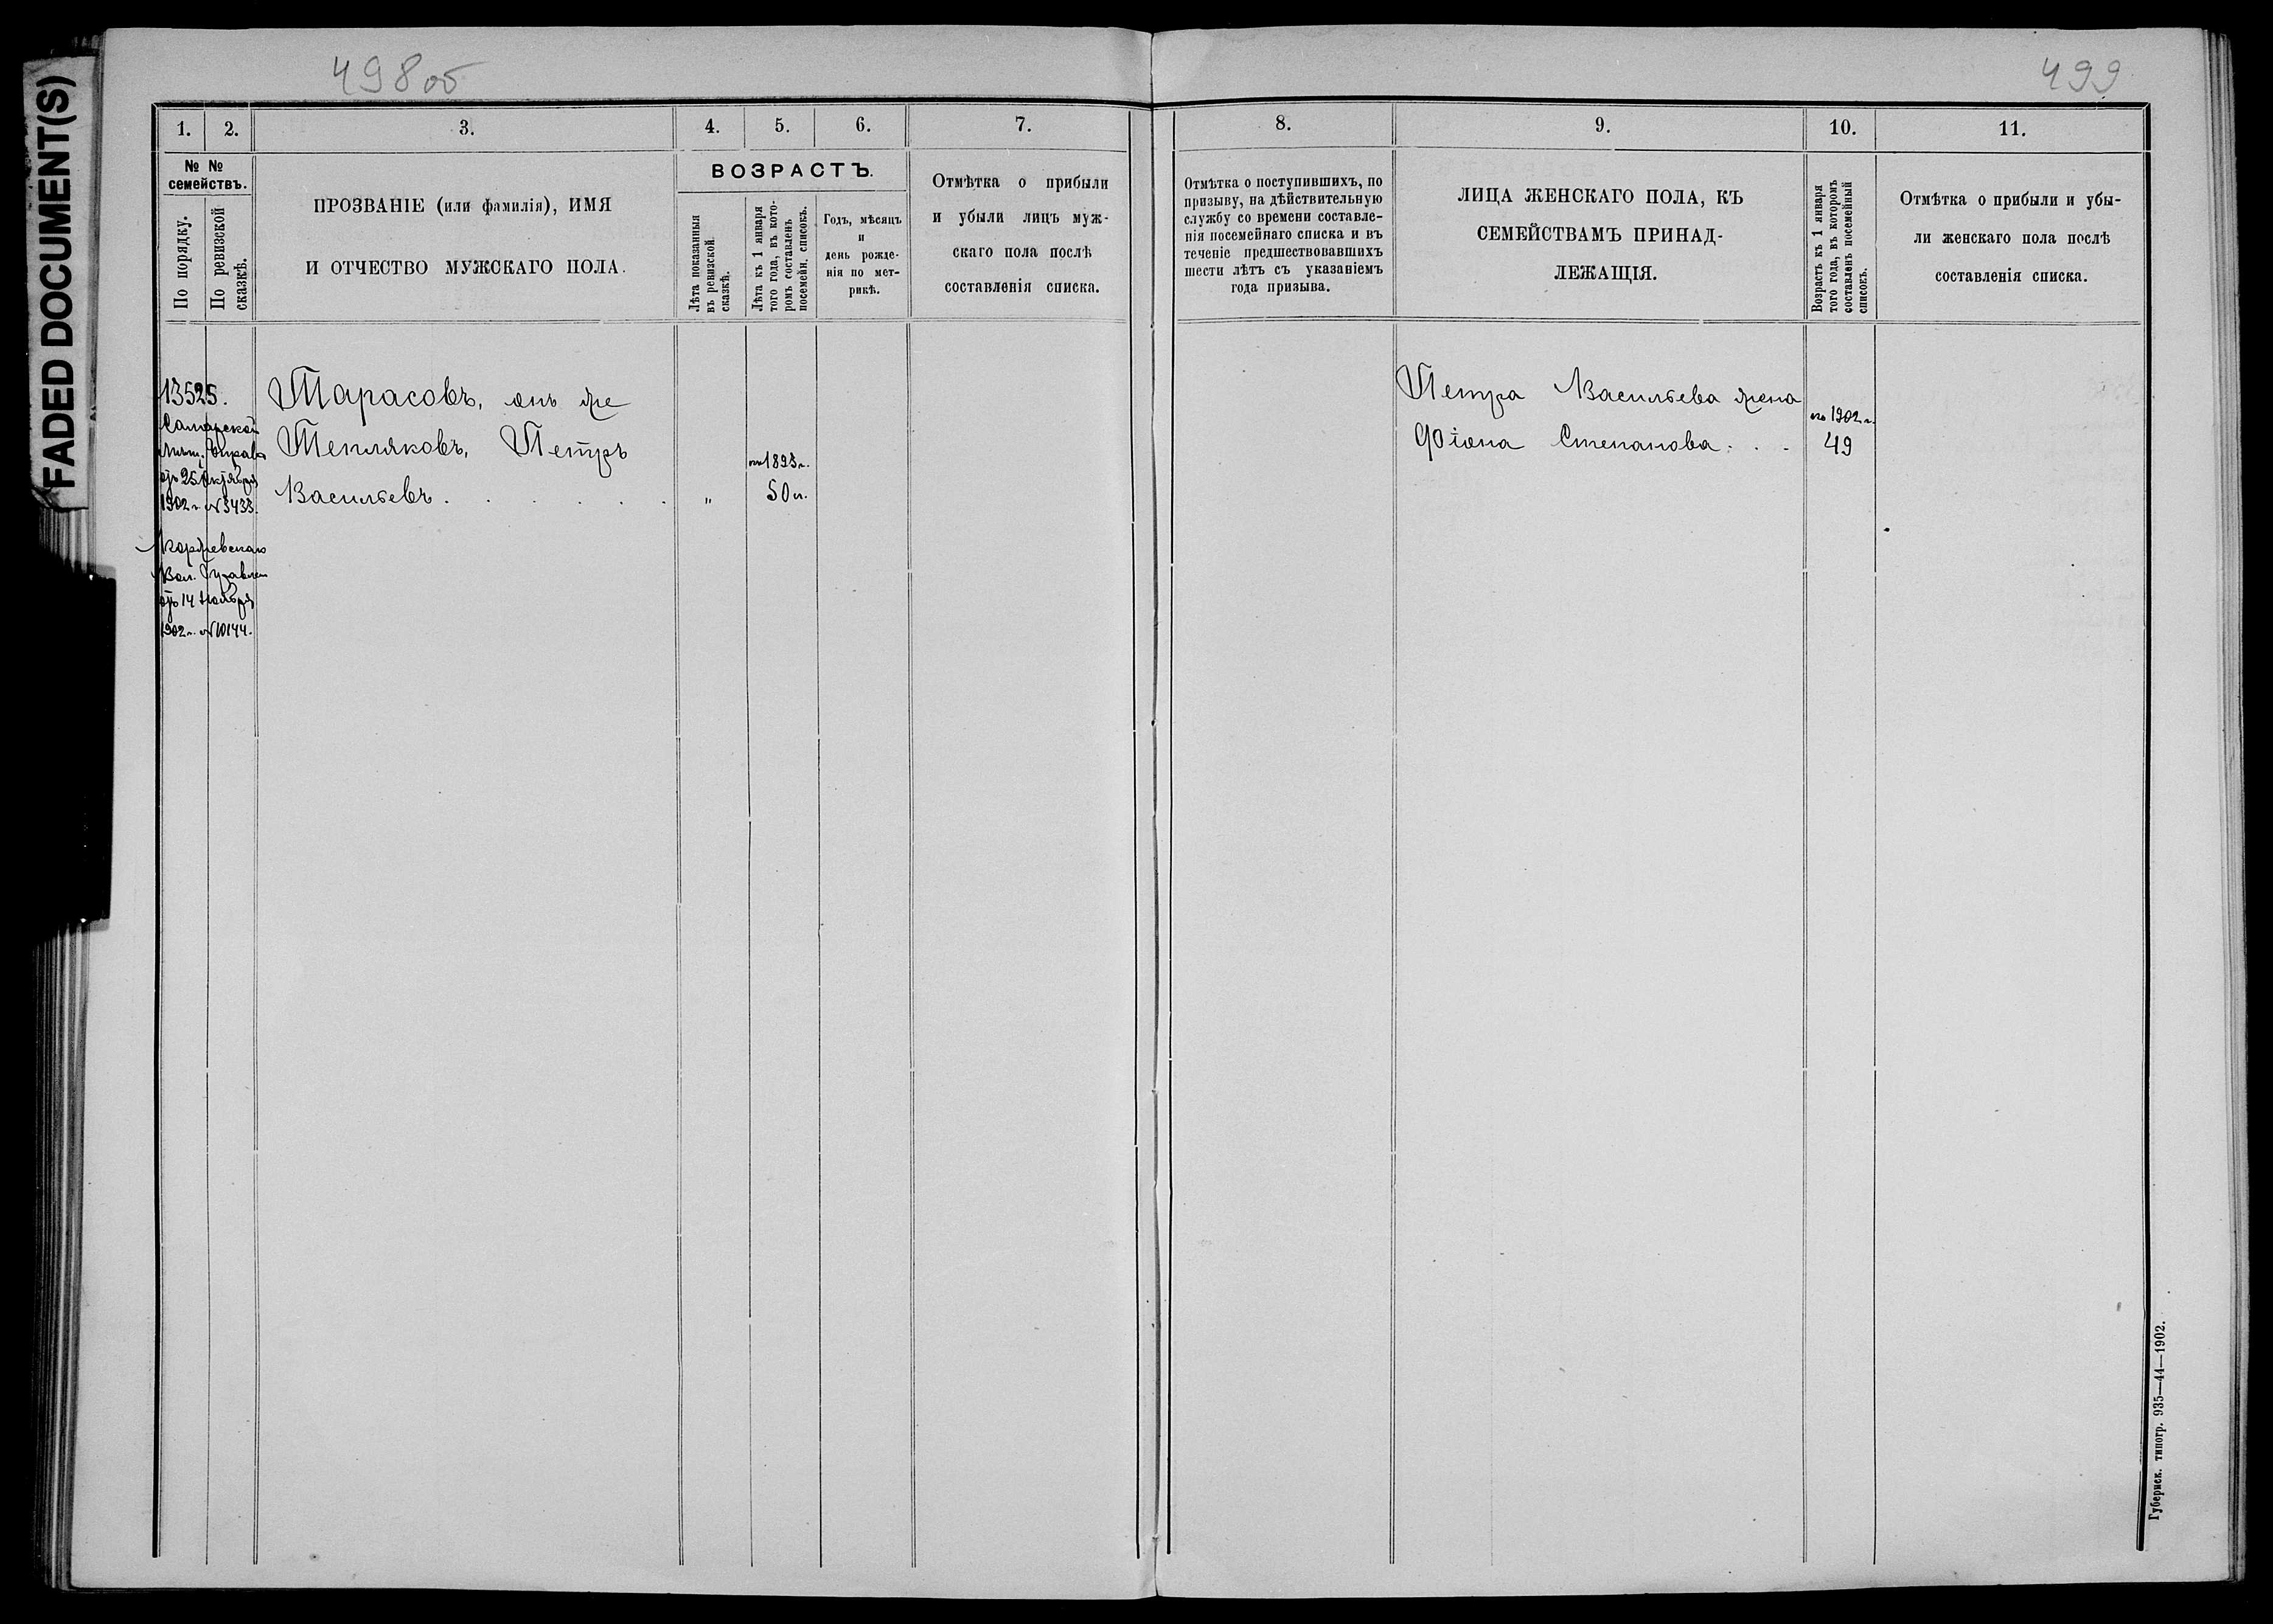 FADED DOCUMENT(S)
498 об
499
1.
2.
3.
4.
5.
6.
7.
8.
9.
10.
11.
№ №
семействъ.
По порядку.
По ревизской
сказкѣ.
ПРОЗВАНІЕ (или фамилія), ИМЯ
И ОТЧЕСТВО МУЖСКАГО ПОЛА.
ВОЗРАСТЪ.
Лѣта показанныя
въ ревизской
сказкѣ.
Лѣта къ 1 января
того года, въ кото-
ромъ составленъ
посемейн. списокъ.
Годъ, мѣсяцъ
и
день рожде-
нія по мет-
рикѣ.
Отмѣтка о прибыли
и убыли лицъ муж-
скаго пола послѣ
составленія списка.
Отмѣтка о поступившихъ, по
призыву, на дѣйствительную
службу со времени составле-
нія посемейнаго списка и въ
теченіе предшествовавшихъ
шести лѣтъ съ указаніемъ
года призыва.
ЛИЦА ЖЕНСКАГО ПОЛА, КЪ
СЕМЕЙСТВАМЪ ПРИНАД-
ЛЕЖАЩІЯ.
Возрастъ къ 1 января
того года, въ которомъ
составленъ посемейный
списокъ.
Отмѣтка о прибыли и убы-
ли женскаго пола послѣ
составленія списка.
13525.
Самарской
Мѣщ. Управы
отъ 25 Октября
1902 г. № 3433.
Вол. Правлен
отъ 14 Ноября
1902 г. № 10144.
Тарасовъ, онъ же
Тепляковъ, Петръ
Васильевъ . . . . . „
на 1893 г.
50 л.
Петра Васильева жена
Фіона Степанова . . .
на 1902 г.
49
Губернск. типогр. 935—44—1902.